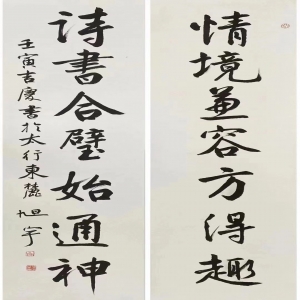 情境兼容方得趣
诗書合璧始通神
壬寅吉慶書於太行東麓旭宇